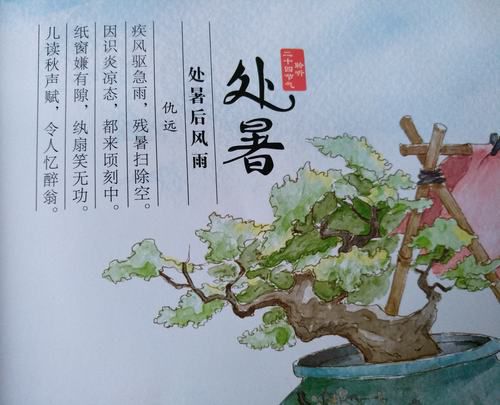 处暑
聆听
二十四节气
处暑后风雨
仇远
疾风驱急雨，残暑扫除空。
因识炎凉态，都来顷刻中。
纸窗嫌有隙，纨扇笑无功。
儿读秋声赋，令人忆醉翁。